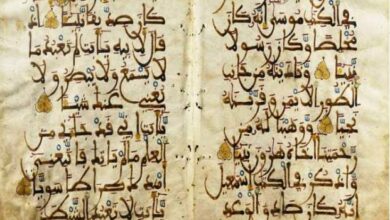 في الكتب موسى انه كان
مخلصا وكان رسولا
نبيا وندينه من جانب
الطور الايمن وقربنه
نجيا ووهبنا له من
رحمتنا اخاه هرون نبيا
واذكر في الكتب اسمعيل
انه كان صادق
كان صديقا نبيا اذ
قال لابيه يابت لم تعبد ما
لا يسمع ولا يبصر ولا
يغني عنك شيئا
يابت اني قد جاءني من
العلم ما لم ياتك فاتبعني
اهدك صراطا سويا
يابت لا تعبد الشيطن